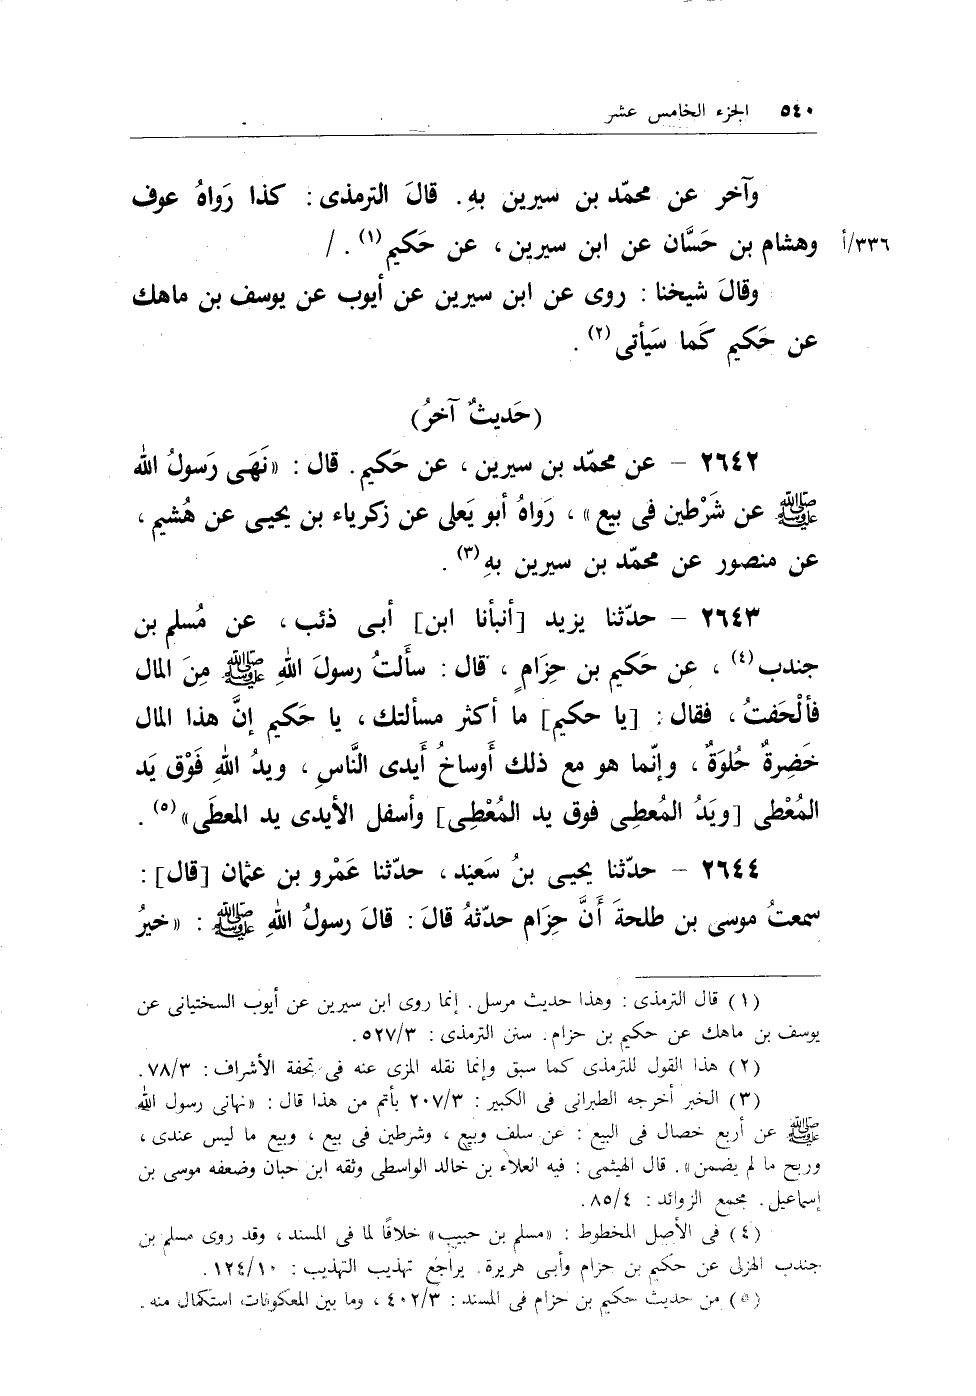 ٥٤٠ الجزء الخامس عشر
وآخر عن محمّد بن سيرين بهِ. قالَ الترمذى: كذا رَواهُ عوف
وهشام بن حَسَّان عن ابن سيرين، عن حَكيم(١). / ٣٣٦/أ
وقالَ شيخنا: روى عن ابن سيرين عن أيوب عن يوسف بن ماهك
عن حَكيم كَما سَيأتى(٢).
(حَديثٌ آخرُ)
٢٦٤٢ – عن محمّد بن سيرين، عن حَكيم. قال: «نَهَى رَسولُ الله
ﷺ عن شَرْطين فى بيع»، رَواهُ أبو يَعلى عن زكرياء بن يحيى عن هُشيم،
عن منصور عن محمّد بن سيرين بهِ(٣).
٢٦٤٣ – حدّثنا يزيد [أنبأنا ابن] أبى ذئب، عن مُسلم بن
جندب(٤)، عن حَكيم بن حِزَامٍ، قال: سأَلتُ رسولَ اللهِ ﷺ مِنَ المال
فألْحَفتُ، فقال: [يا حكيم] ما أكثر مسألتك، يا حَكيم إنَّ هذا المال
خَضِرةٌ حُلوَةٌ، وإنّما هو مع ذلك أَوساخُ أَيدى النَّاسِ، ويدُ اللهِ فَوْق يَد
المُعْطى [ويَدُ المُعطِى فوق يد المُعْطِى] وأسفل الأيدى يد المعطَى»(٥).
٢٦٤٤ – حدّثنا يحيى بنُ سَعيْد، حدّثنا عَمْرو بن عثمان [قال]:
سمعتُ موسى بن طلحةَ أَنَّ حِزَام حدّثهُ قالَ: قالَ رسولُ اللهِ ﷺ: «خيرُ
(١) قال الترمذى: وهذا حديث مرسل. إنما روى ابن سيرين عن أيوب السختيانى عن
يوسف بن ماهك عن حكيم بن حزام. سنن الترمذى: ٥٢٧/٣.
(٢) هذا القول للترمذى كما سبق وإنما نقله المزى عنه فى تحفة الأشراف: ٧٨/٣.
(٣) الخبر أخرجه الطبرانى فى الكبير: ٢٠٧/٣ بأتم من هذا قال: «نهانى رسول الله
ﷺ عن أربع خصال فى البيع: عن سلف وبيع، وشرطين فى بيع، وبيع ما ليس عندى،
وربح ما لم يضمن». قال الهيثمى: فيه العلاء بن خالد الواسطى وثقه ابن حبان وضعفه موسى بن
إسماعيل. مجمع الزوائد: ٨٥/٤.
(٤) فى الأصل المخطوط: «مسلم بن حبيب» خلافًا لما فى المسند، وقد روى مسلم بن
جندب الهزلى عن حكيم بن حزام وأبى هريرة. يراجع تهذيب التهذيب: ١٢٤/١٠.
(٥) من حديث حكيم بن حزام فى المسند: ٤٠٢/٣، وما بين المعكوفات استكمال منه.